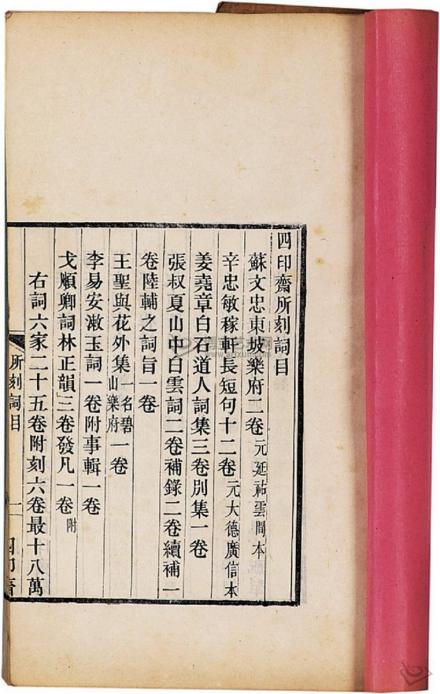 四印齋所刻詞目
蘇文忠東坡樂府二卷 元延祐雲間本
辛忠敏稼軒長短句十二卷 元大德廣信本
姜堯章白石道人詞集三卷別集一卷
張叔夏山中白雲詞二卷補錄二卷續補一
卷陸輔之詞旨一卷
王聖與花外集 一名碧山樂府 一卷
李易安漱玉詞一卷附事輯一卷
戈順卿詞林正韻三卷發凡一卷 附
右詞六家二十五卷附刻六卷最十八萬
所刻詞目 一 四印齋